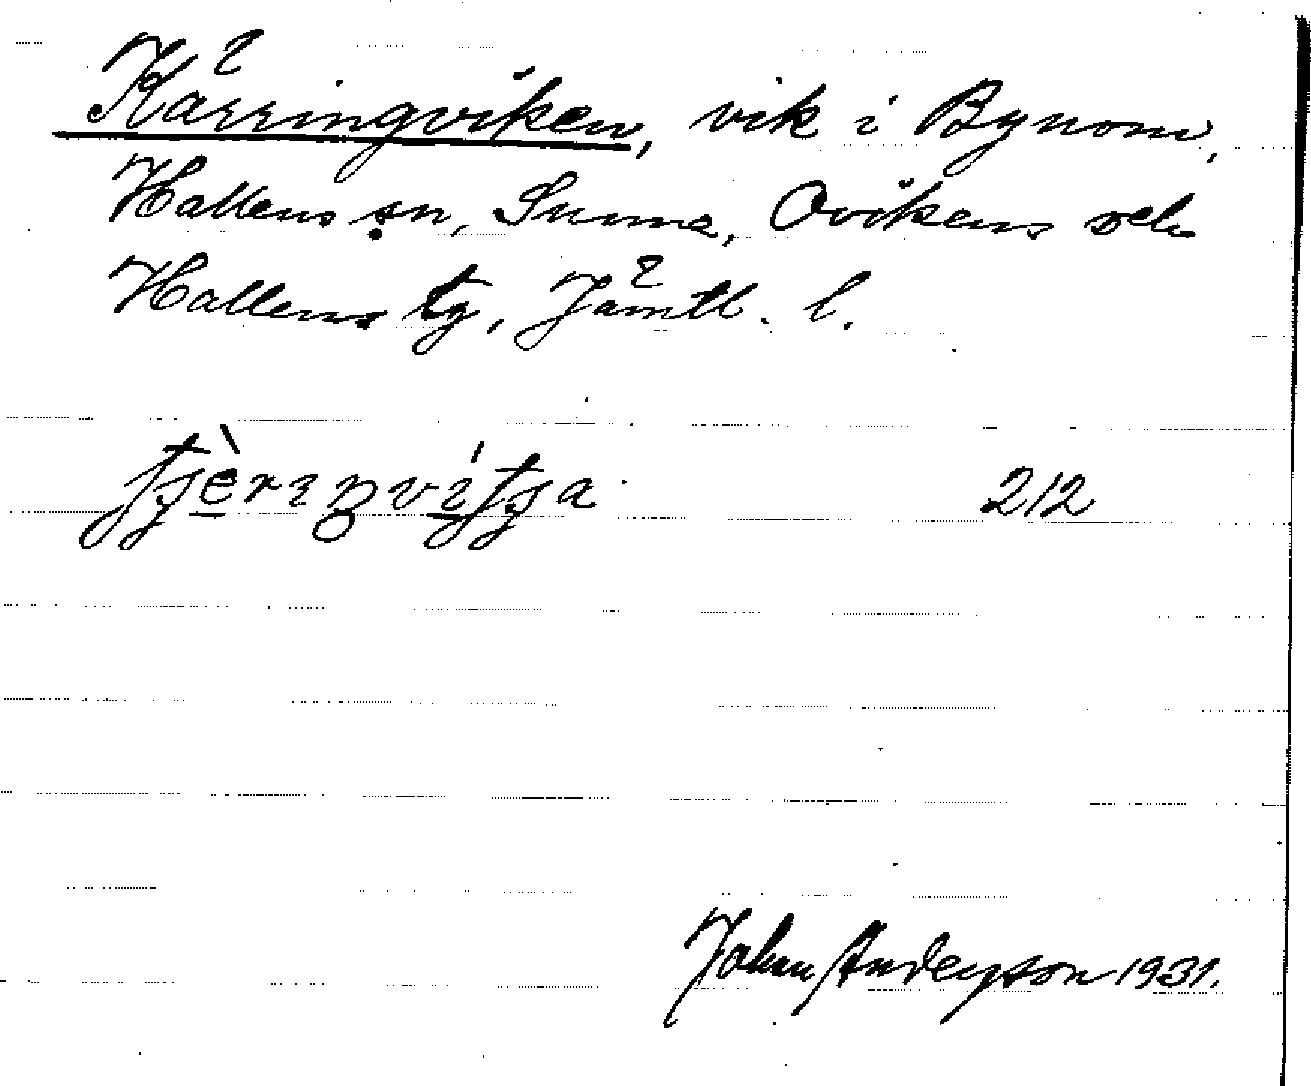 Kärringviken, vik i Bynom,
Hallens sn, Sunne, Ovikens och
Hallens tg, Jämtl. l.
212
Johan Anderson 1931.